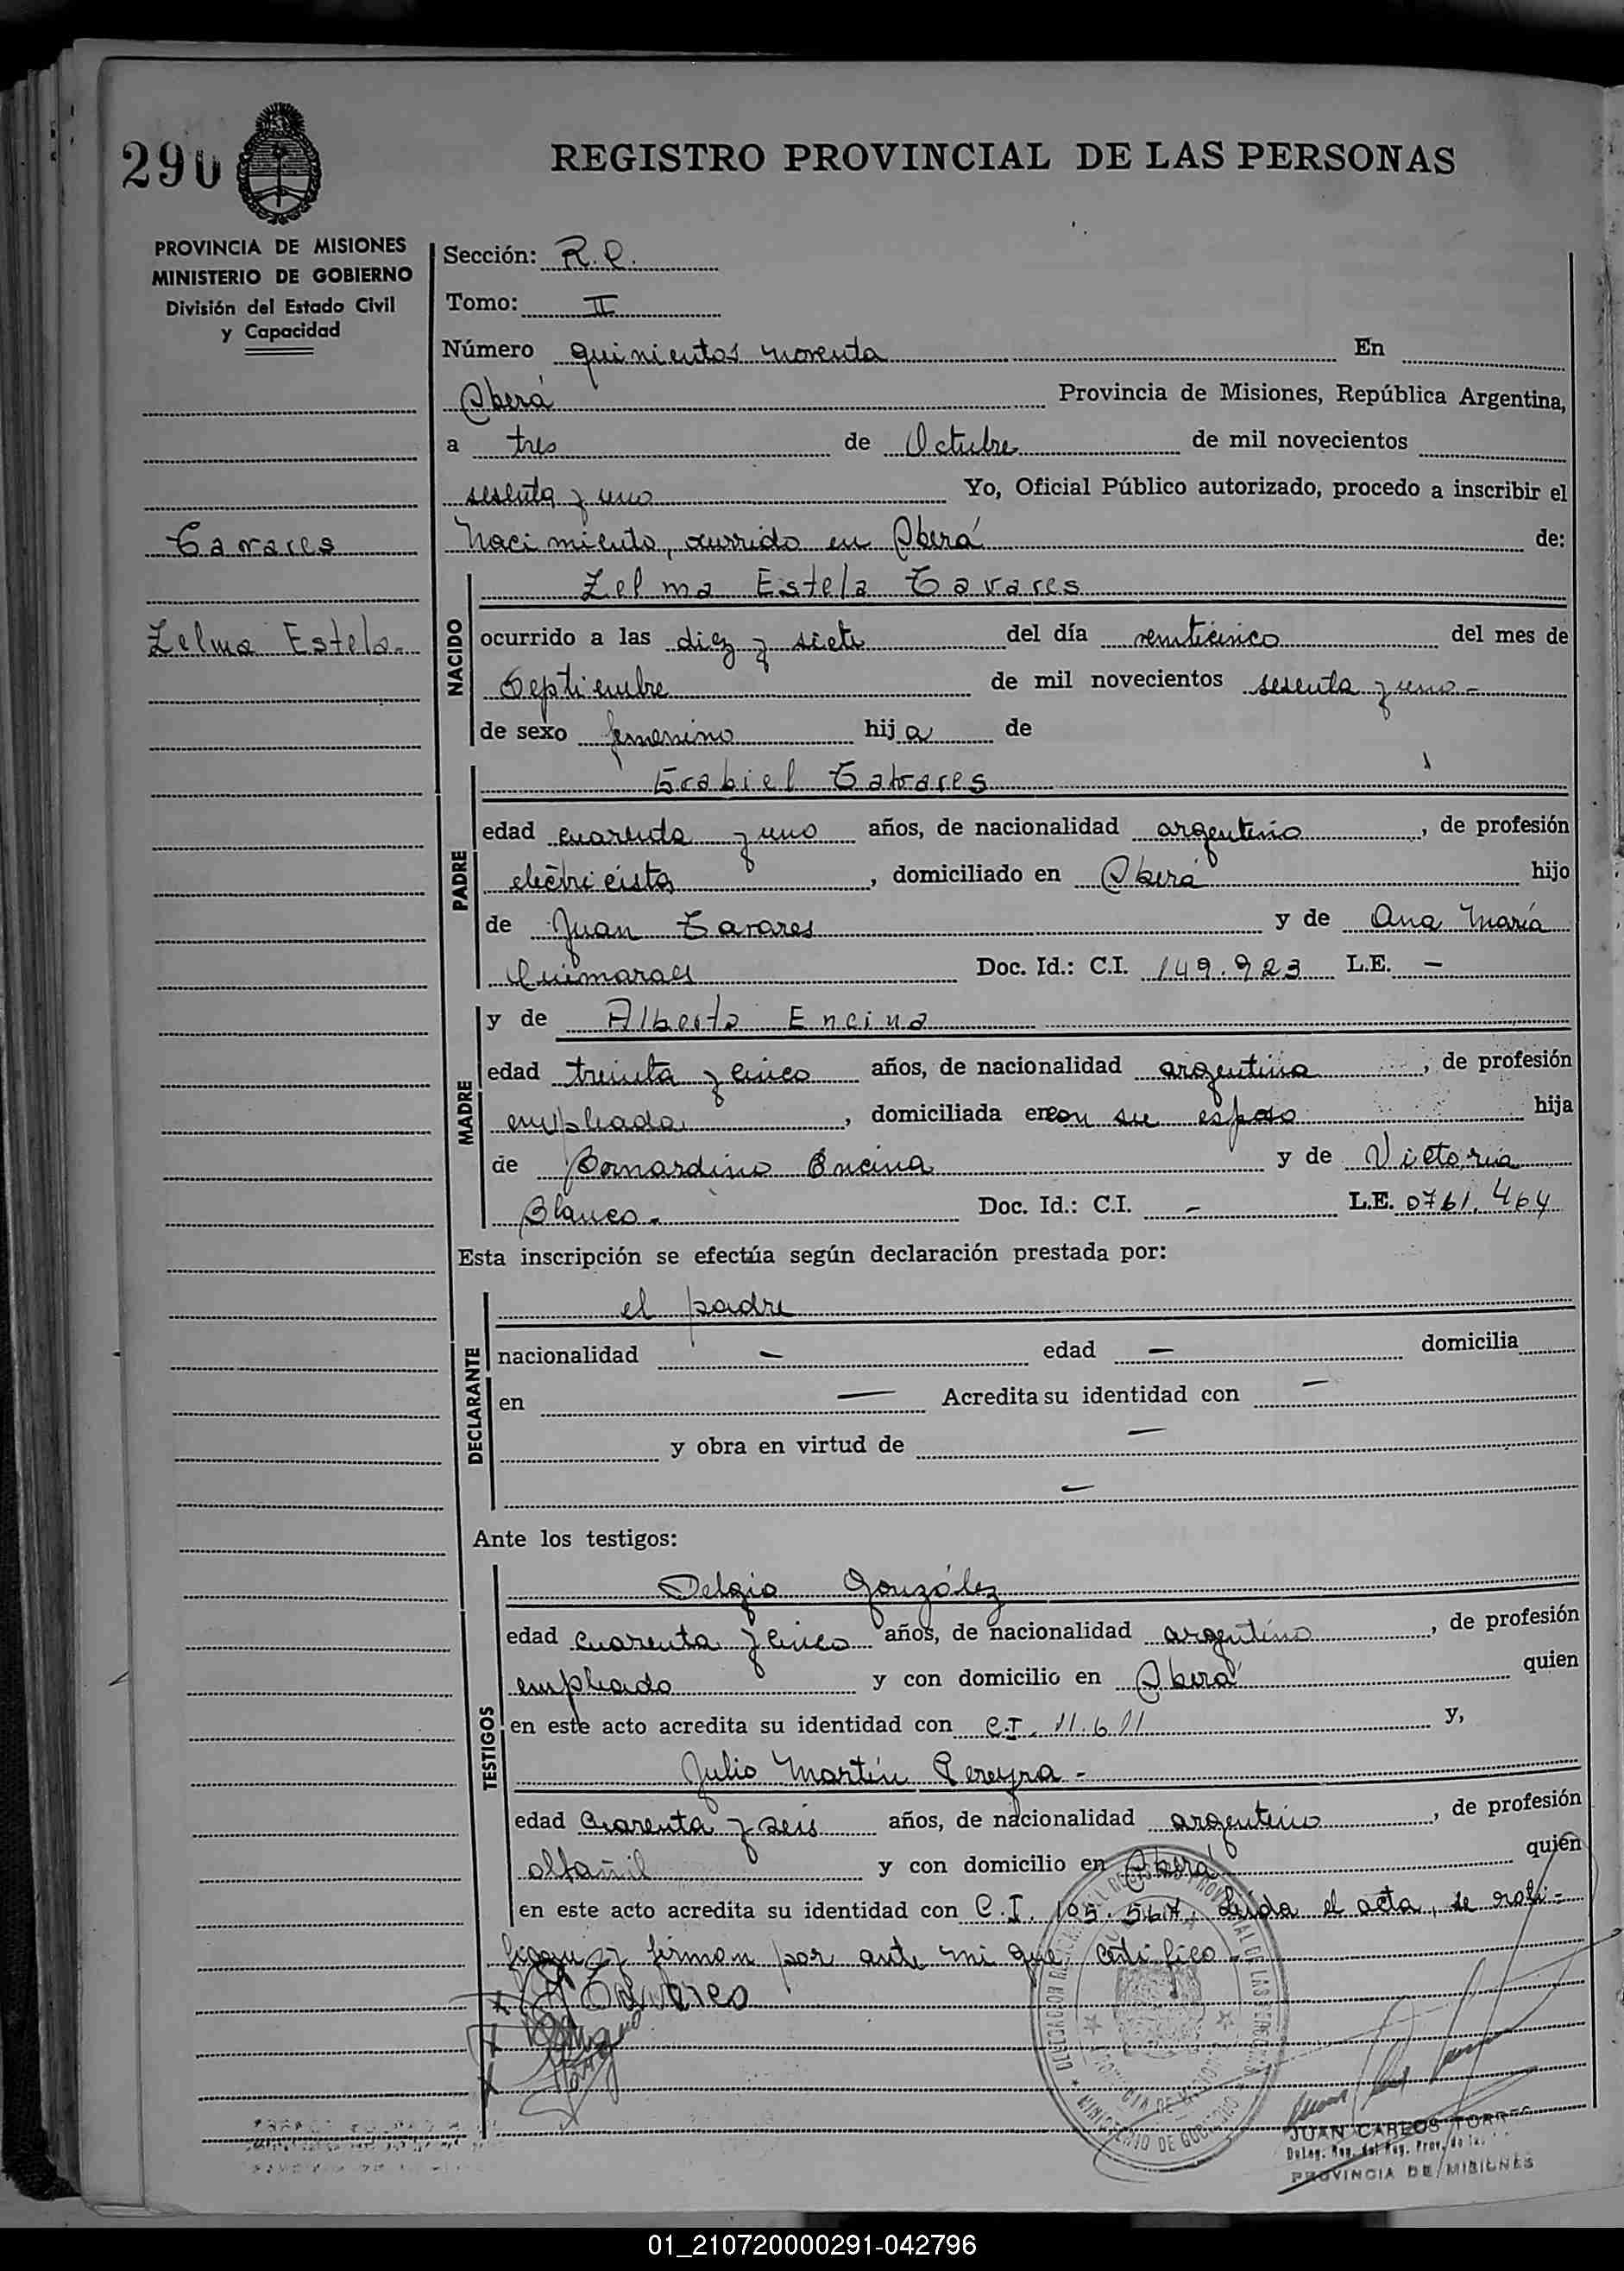 290
REGISTRO PROVINCIAL DE LAS PERSONAS
PROVINCIA DE MISIONES
MINISTERIO DE GOBIERNO
División del Estado Civil
y Capacidad
Tavares
Zelma Estela.
Sección: R.P.
Tomo: II
Número quinientos noventa En
Oberá Provincia de Misiones, República Argentina,
a tres de Octubre de mil novecientos
sesenta y uno Yo, Oficial Público autorizado, procedo a inscribir el
Nacimiento, ocurrido en Oberá de:
NACIDO
Zelma Estela Tavares
ocurrido a las diez y siete del día veinticinco del mes de
Septiembre de mil novecientos sesenta y uno-
de sexo femenino hija de
PADRE
Grabiel Tavares
edad cuarenta y uno años, de nacionalidad argentino, de profesión
electricista, domiciliado en Oberá hijo
de Juan Tavares y de Ana María
Guimaraes Doc. Id.: C.I. 149.923 L.E. -
MADRE
y de Alberta Encina
edad treinta y cinco años, de nacionalidad argentina, de profesión
empleada, domiciliada en con su esposo hija
de Bernardino Encina y de Victoria
Blanco. Doc. Id.: C.I. - L.E. 0761.464
Esta inscripción se efectúa según declaración prestada por:
DECLARANTE
el padre
nacionalidad - edad - domicilia
en - Acredita su identidad con -
y obra en virtud de -
-
Ante los testigos:
TESTIGOS
Delgio González
edad cuarenta y cinco años, de nacionalidad argentino, de profesión
empleado y con domicilio en Oberá quien
en este acto acredita su identidad con C.I. 11.611 y,
Julio Martín Pereyra-
edad cuarenta y seis años, de nacionalidad argentino, de profesión
albañil y con domicilio en Oberá quien
en este acto acredita su identidad con C.I. 105.567. Leída el acta, se rati-
fican y firman por ante mi que certifico.
Tavares
MINISTERIO DE GOBIERNO
JUAN CARLOS TORRES
Deleg. Reg. del Reg. Prov. de la
PROVINCIA DE MISIONES
01_210720000291-042796